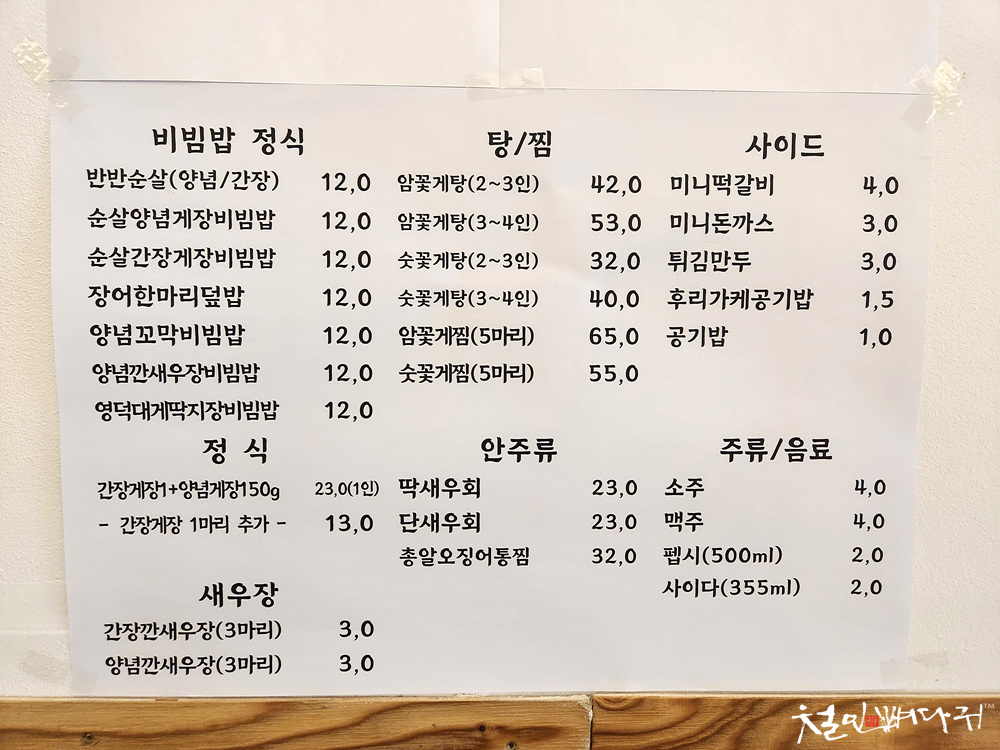 비빔밥 정식
반반순살(양념/간장) 12,0
순살양념게장비빔밥 12,0
순살간장게장비빔밥 12,0
장어한마리덮밥 12,0
양념꼬막비빔밥 12,0
양념깐새우장비빔밥 12,0
영덕대게딱지장비빔밥 12,0
정 식
간장게장1+양념게장150g 23,0(1인)
- 간장게장 1마리 추가 - 13,0
새우장
간장깐새우장(3마리) 3,0
양념깐새우장(3마리) 3,0
탕/찜
암꽃게탕(2~3인) 42,0
암꽃게탕(3~4인) 53,0
숫꽃게탕(2~3인) 32,0
숫꽃게탕(3~4인) 40,0
암꽃게찜(5마리) 65,0
숫꽃게찜(5마리) 55,0
안주류
딱새우회 23,0
단새우회 23,0
총알오징어통찜 32,0
사이드
미니떡갈비 4,0
미니돈까스 3,0
튀김만두 3,0
후리가케공기밥 1,5
공기밥 1,0
주류/음료
소주 4,0
맥주 4,0
펩시(500ml) 2,0
사이다(355ml) 2,0